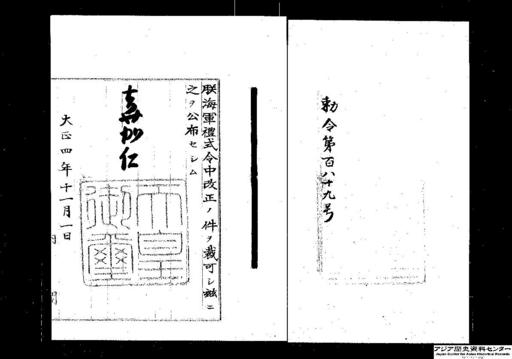 勅令第百八十九号
朕海軍禮式令中改正ノ件ヲ裁可シ茲ニ
之ヲ公布セシム
嘉仁
天皇
御璽
大正四年十一月一日
アジア歴史資料センター
Japan Center for Asian Historical Records